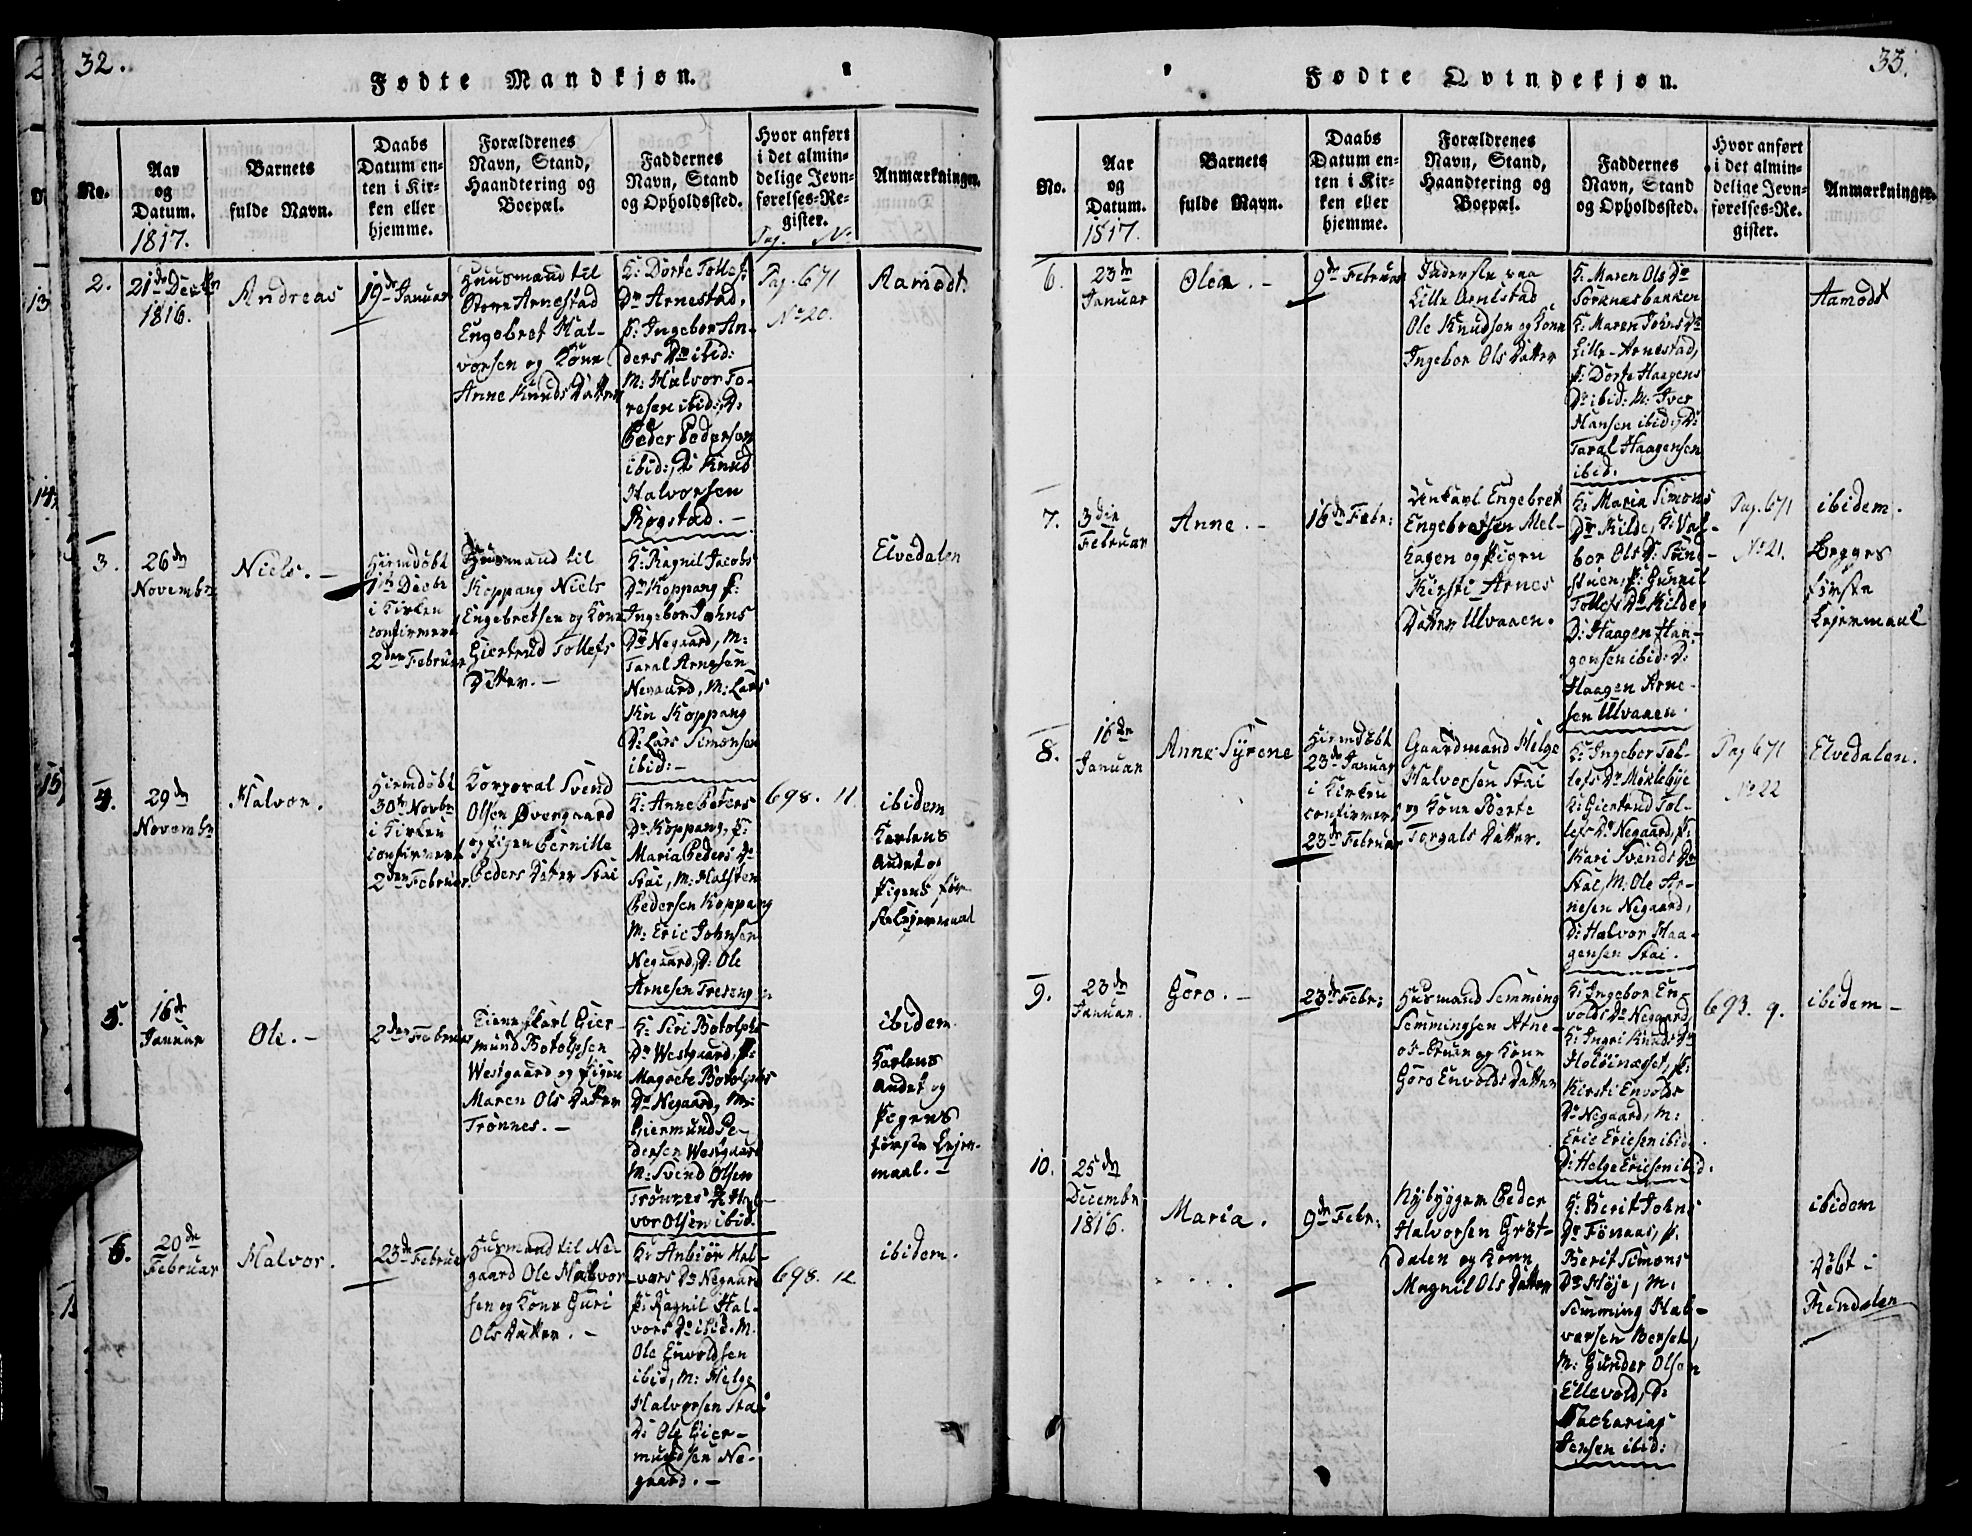 32.
Fødte Mandkjøn.
No.
Aar
og
Datum.
1817.
Barnets
fulde Navn.
Daabs
Datum en-
ten i Kir-
ken eller
hjemme.
Forældrenes
Navn, Stand,
Haandtering og
Boepæl.
Faddernes
Navn, Stand
og Opholdssted.
Hvor anført
i det almin-
delige Jevn-
førelses-Re-
gister.
Pag. No
Anmærkninger.
2.
21de Decbr
1816.
Andreas
19de Januar
Huusmand til
Store Arnestad
Engebret Hal-
vorsen og Kone
Anne Knuds Datter
K: Dorte Tollefs
Dr Arnestad,
P: Ingebor An-
ders Dr ibid:
M: Halvor To-
resen ibid:, D:
Peder Pedersen
ibid:, D: Knud
Halvorsen
Rogstad. -
Pag. 671
No 20.
Aamodt.
3.
26de
Novembr
Niels. -
Hiemdøbt
1ste Decbr
i Kirken
confirmert
2den Februar
Huusmand til
Koppang Niels
Engebretsen og Kone
Giertrud Tollefs
Datter. -
K: Ragnil Jacobs
Dr Koppang P:
Ingebor Johns
Dr Negaard, M:
Taral Arnesen
Negaard, M: Lars
Koppang
D: Lars Simonsen
ibid: -
Elvedalen
4.
29de
Novembr
Halvor.
Hiemdøbt
30te Novbr
i Kirken
confirmert
2den Februar.
Korporal Svend
Olsen Øvergaard
og Pigen Pernille
Peders Datter Stai
K: Anne Peders
Dr Koppang, P:
Maria Peders Dr
Stai, M: Halsten
Pedersen Koppang
M: Eric Johnsen
Negaard, D: Ole
Arnesen Treseng
698. 11.
ibidem
Karlens
Andet og
Pigens før-
ste Lejermaal
5.
16de
Januar
Ole. -
2den Februar
Tienestkarl Gier-
mund Botolphsen
Westgaard og Pigen
Maren Ols Datter
Trønnes. -
K: Siri Botolphs
Dr Westgaard, P:
Magrete Botolphs
Dr Negaard, M:
Giermund Pe-
dersen Westgaard
M: Svend Olsen
Trønnes D: Hal-
vor Olsen ibid.
ibidem.
Karlens
Andet og
Pigens
første Lejer-
maal. -
6.
20de
Februar
Halvor.
23de Februar
Huusmand til Ne-
gaard Ole Halvor-
sen og Kone Guri
Ols Datter. -
K: Anbiør Hal-
vors Dr Negaard
P: Ragnil Hal-
vors Dr ibid. M.
Ole Envoldsen
ibid, M: Helge
Halvorsen Stai
D: Ole Gier-
mundsen Ne-
gaard. -
698. 12
ibidem.
33.
Fødte Qvindekjøn.
No.
Aar
og
Datum.
1817.
Barnets
fulde Navn.
Daabs
Datum en-
ten i Kir-
ken eller
hjemme.
Forældrenes
Navn, Stand,
Haandtering og
Boepæl.
Faddernes
Navn, Stand
og Opholdssted.
Hvor anført
i det almin-
delige Jevn-
førelses-Re-
gister.
Anmærkninger.
6.
23de
Januar
Olea. -
9de Februar
Inderste paa
Lille Arnestad
Ole Knudsen og Kone
Ingebor Ols Datter
K: Maren Ols Dr
Sorknesbakken
K: Maren Johns Dr
Lille-Arnestad,
P: Dorte Haagens
Dr ibid: M: Iver
Hansen ibid, D:
Taral Haagensen
ibid.
Aamodt
7.
3die
Februar
Anne. -
16de Febr:
Unkarl Engebret
Engebretsen Mel-
hagen og Pigen
Kirsti Arnes
Datter Ulvaaen.
K: Maria Simons
Dr Kilde, K: Val-
bor Ols Dr Sund-
stuen, P: Gunnil
Tollefs Dr Kilde,
D: Haagen Haa-
gensen ibid: D:
Haagen Arne-
sen Ulvaaen.
Pag. 671
No 21.
ibidem.
Begges
første
Lejermaal
8.
16de
Januar
Anne Syrene
Hiemdøbt
23de Januar
i Kirken
confirmert
23de Februar
Gaardmand Helge
Halvorsen Stai
og Kone Berte
Torgals Datter.
K: Ingebor Tol-
lefs Dr Møklebye
K: Giertrud Tol-
lefs Dr Negaard, P:
Kari Svends Dr
Stai, M: Ole Ar-
nesen Negaard,
D: Halvor Haa-
gensen Stai.
Pag 671
No 22
Elvedalen.
9.
23de
Januar.
Goro. -
23de Febr:
Husmand Semming
Semmingsen Atne-
os-Stuen og Kone
Goro Envolds Datter
K: Ingebor En-
volds Dr Negaard
K: Ingri Knuds Dr
Holøinæsset, P:
Kirsti Envolds
Dr Negaard, M:
Eric Ericsen ibid:
D: Helge Ericsen ibid.
693. 9.
ibidem -
10.
25de
Decembr
1816.
Maria.
9de Febr:
Nybygger Peder
Halvorsen Grøt-
dalen og Kone
Magnil Ols Datter
K: Berit Johns
Dr Fonaas, P:
Berit Simons
Dr Høje, M:
Semming Hal-
vorsen Berset,
M: Gunder Olsen
Ellevold, D:
Zacharias
Jensen ibid:
ibidem
Døbt i
Rendalen